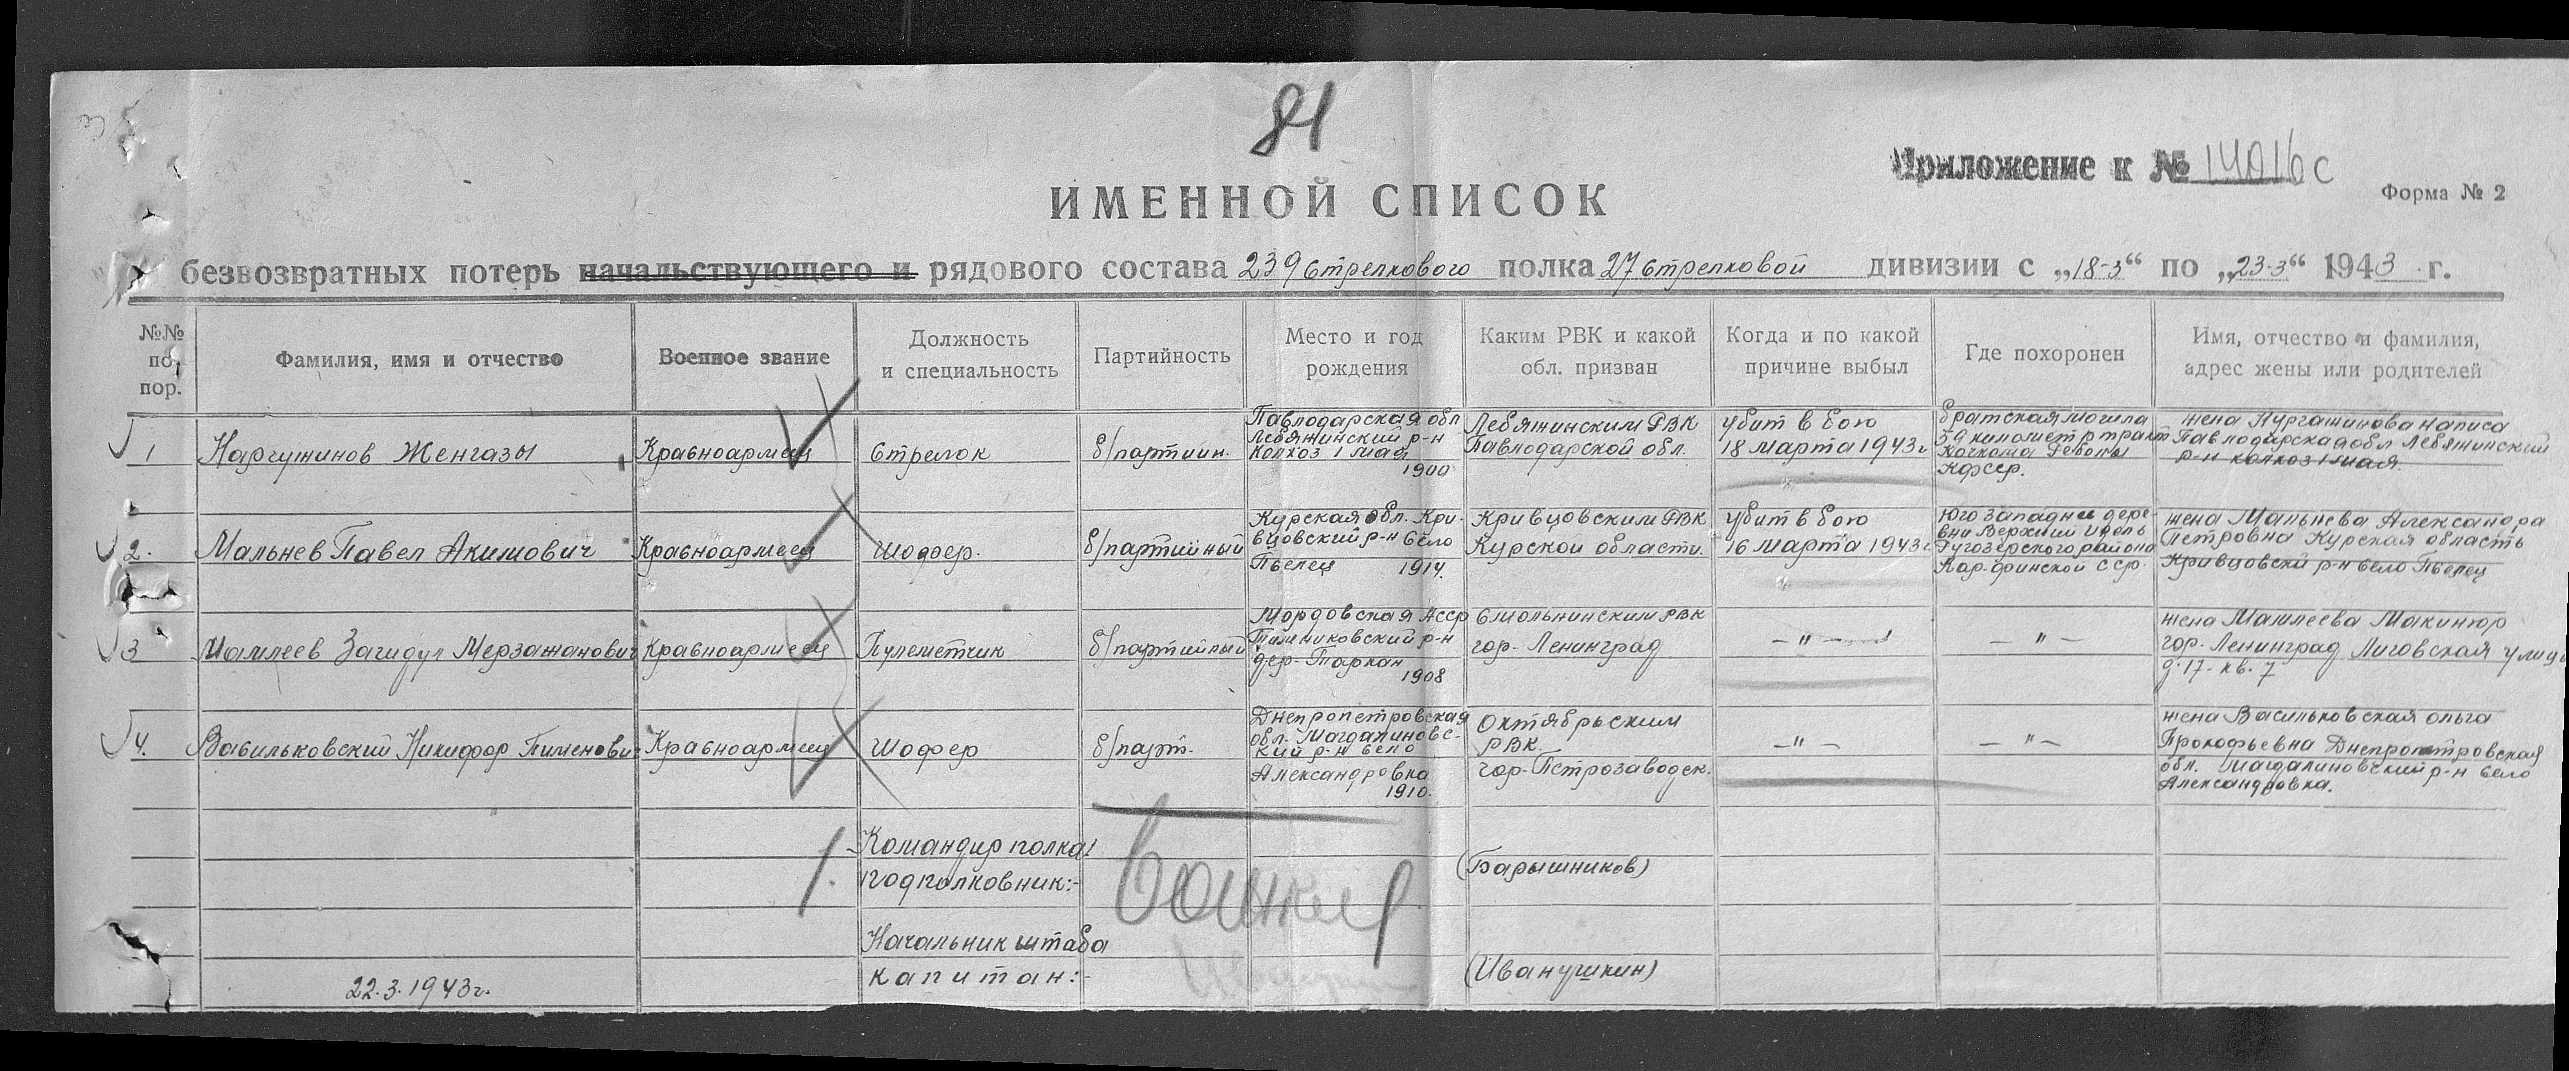 81
Приложение к № 14016с
Форма № 2
ИМЕННОЙ СПИСОК
безвозвратных потерь начальствующего и рядового состава 239 стрелкового полка 27 стрелковой дивизии с „18-3“ по „23-3“ 1943 г.
№№ по пор.
Фамилия, имя и отчество
Военное звание
Должность и специальность
Партийность
Место и год рождения
Каким РВК и какой обл. призван
Когда и по какой причине выбыл
Где похоронен
Имя, отчество и фамилия, адрес жены или родителей
1
Наргужинов Женгазы
Красноармеец
Стрелок
б/партийн.
Павлодарская обл
Лебяжинский р-н
Колхоз 1 мая
1900
Лебяжинским РВК
Павлодарской обл.
Убит в бою
18 марта 1943г
братская могила
39 километр тракт
Кочкома Реболы
Кфсср.
жена Нургажинова Написа
Павлодарская обл Лебяжинский
р-н колхоз 1 мая.
2.
Мальнев Павел Акимович
Красноармеец
Шофер.
б/партийный
Курская обл. Кри-
вцовский р-н село
Пселец 1914.
Кривцовским РВК
Курской области.
Убит в бою
16 марта 1943г
Юго западнее дере-
вни Верхний Идель
Ругозерского района
Кар. финской сср.
жена Мальнева Александра
Петровна Курская область
Кривцовский р-н село Пселец
3
Мамлеев Загидул Мерзажанович
Красноармеец
Пулеметчик
б/партийный
Мордовская Асср
Темниковский р-н
дер- Таркан
1908
Смольнинским РВК
гор- Ленинград
— " —
— " —
жена Мамлеева Макинюр
гор- Ленинград Лиговская улица
д. 17- кв. 7
4.
Васильковский Никифор Пименович
Красноармеец
Шофер
б/парт.
Днепропетровская
обл. Магдалиновс-
кий р-н село
Александровка
1910.
Октябрьским
РВК.
гор- Петрозаводск.
— " —
— " —
жена Васильковская Ольга
Прокофьевна Днепропетровская
обл. Магдалиновский р-н село
Александровка.
Командир полка
подполковник:-
(Барышников)
Начальник штаба
капитан:-
(Иванушкин)
22.3.1943г.